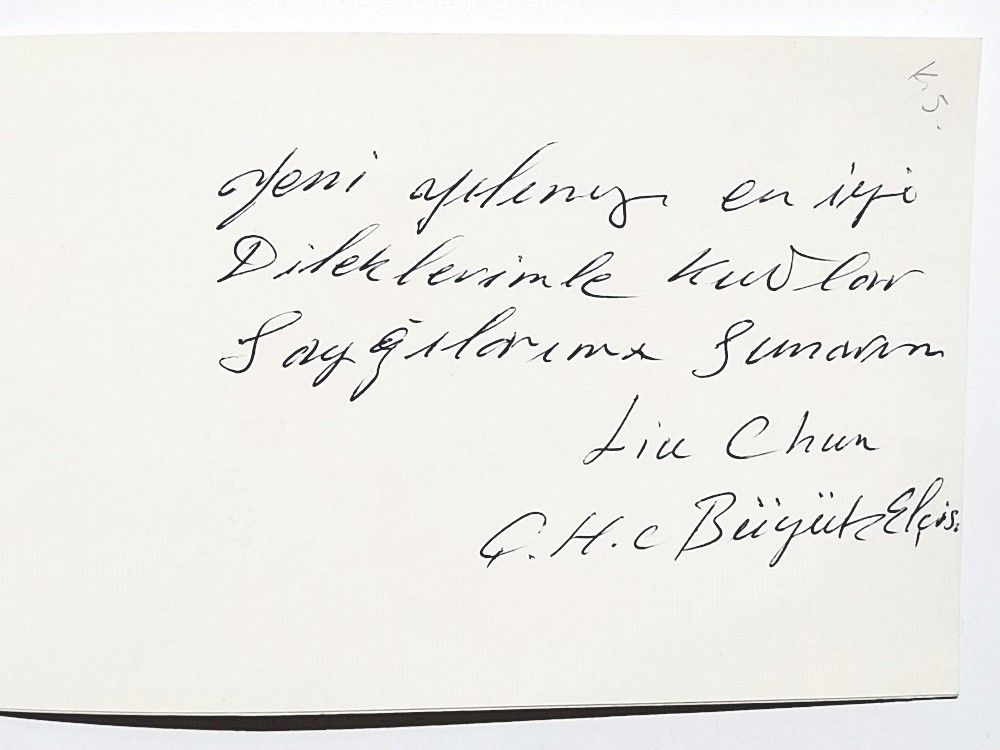 Yeni yılınızı en iyi
Dileklerimle Kutlar
Saygılarımı Sunarım
Liu Chun
Ç.H.C Büyük Elçisi